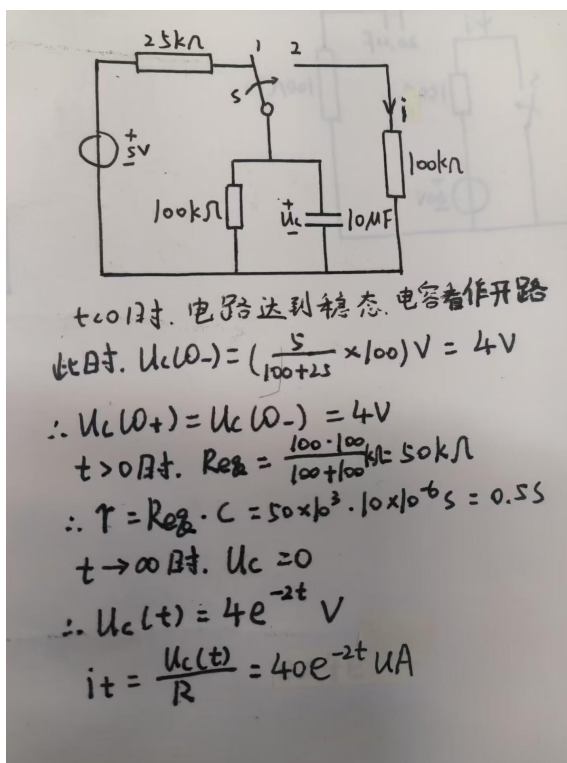 25kΩ
1 2
S
+
5V
-
i
100kΩ
100kΩ
+
Uc
-
10μF
t<0时. 电路达到稳态. 电容看作开路
此时. Uc(0-)=(5/(100+25)×100)V=4V
∴Uc(0+)=Uc(0-)=4V
t>0时. Req=(100·100)/(100+100)kΩ=50kΩ
∴τ=Req·C=50×10³·10×10⁻⁶s=0.5s
t→∞时. Uc=0
∴Uc(t)=4e^{-2t} V
it=Uc(t)/R=40e^{-2t}UA